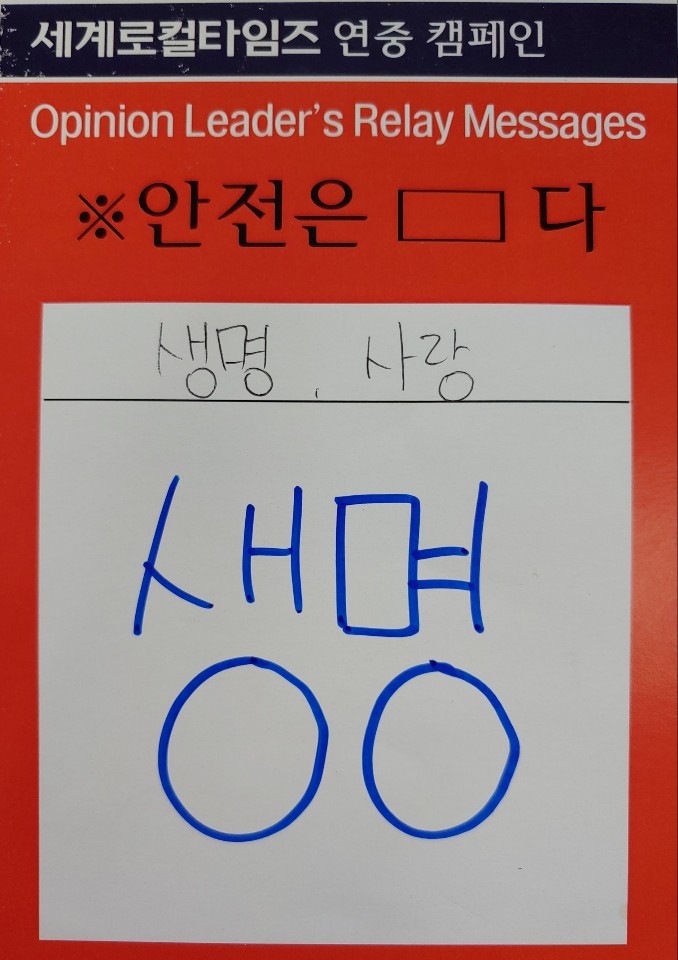 세계로컬타임즈 연중 캠페인
Opinion Leader's Relay Messages
※안전은 □ 다
생명, 사랑
생명